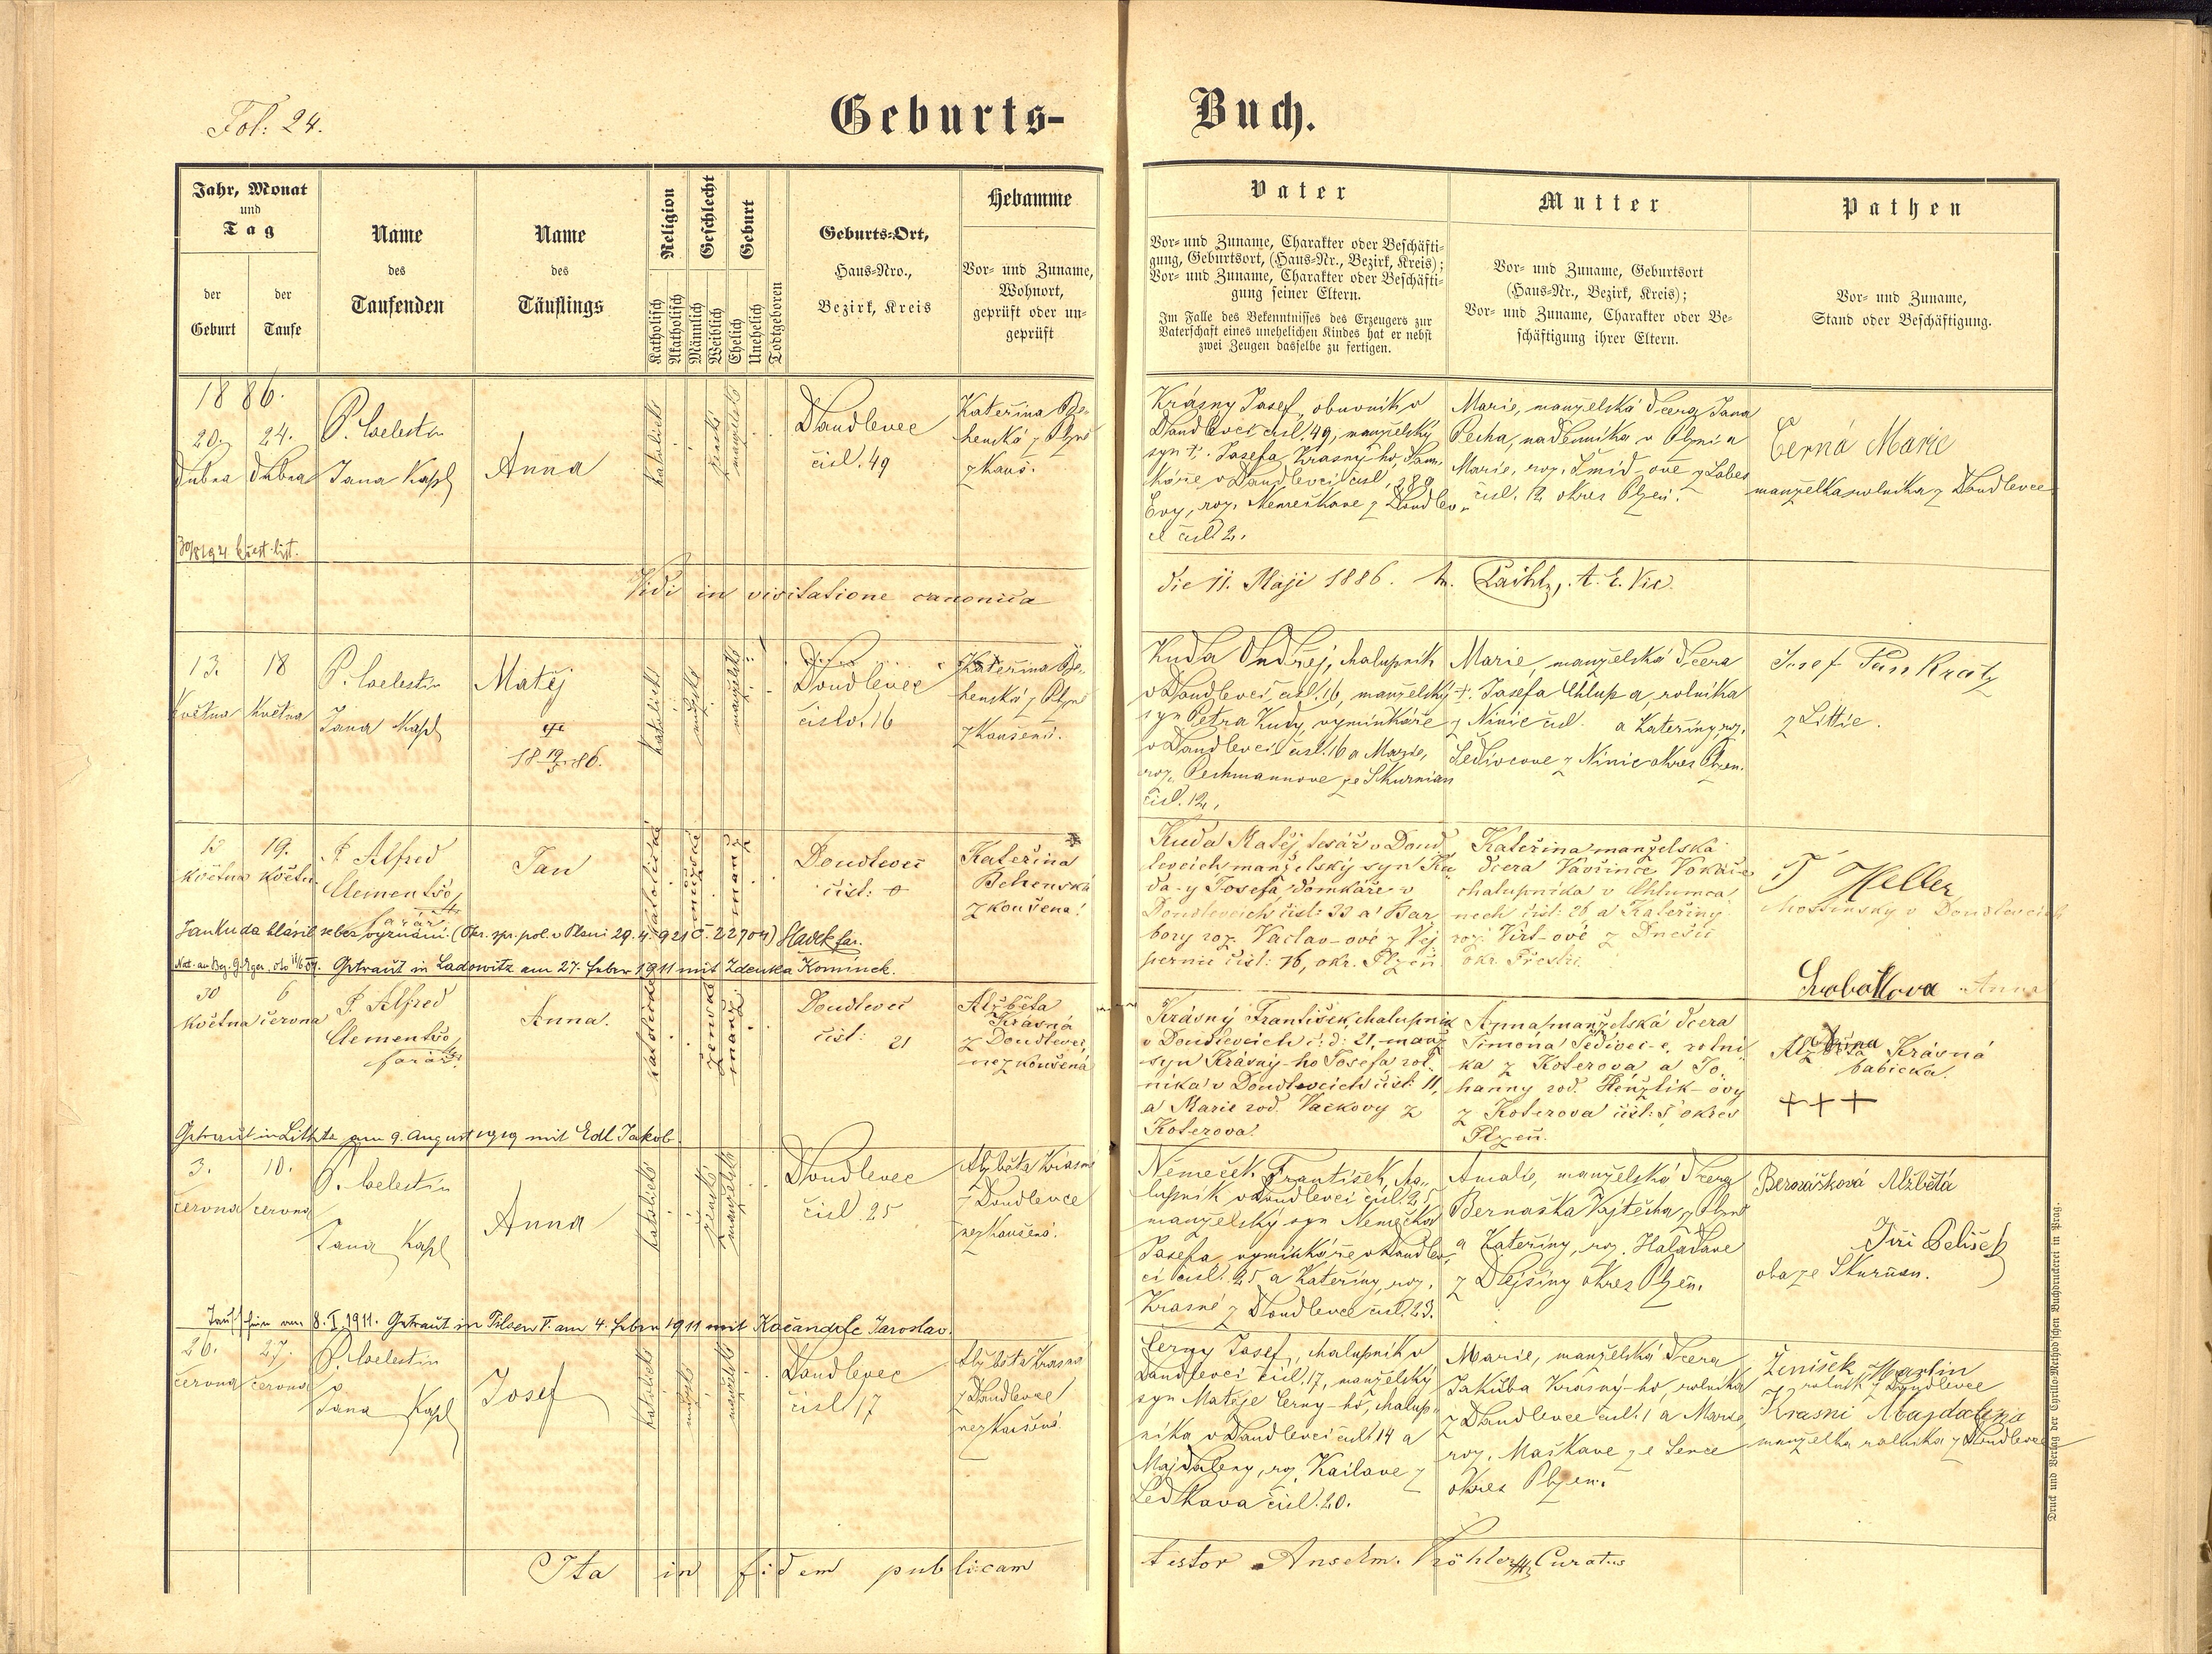 Fol: 24.
Geburts-Buch.
Jahr, Monat und Tag
der Geburt
der Taufe
Name des Taufenden
Name des Täuflings
Religion
Katholisch
Akatholisch
Geschlecht
Männlich
Weiblich
Geburt
Ehelich
Unehelich
Todtgeboren
Geburts-Ort,
Haus-Nro.,
Bezirk, Kreis
Hebamme
Vor- und Zuname,
Wohnort,
geprüft oder un-
geprüft
Vater
Vor- und Zuname, Charakter oder Beschäfti-
gung, Geburtsort, (Haus-Nr., Bezirk, Kreis);
Vor- und Zuname, Charakter oder Beschäfti-
gung seiner Eltern.
Im Falle des Bekenntnisses des Erzeugers zur
Vaterschaft eines unehelichen Kindes hat er nebst
zwei Zeugen dasselbe zu fertigen.
Mutter
Vor- und Zuname, Geburtsort
(Haus-Nr., Bezirk, Kreis);
Vor- und Zuname, Charakter oder Be-
schäftigung ihrer Eltern.
Pathen
Vor- und Zuname,
Stand oder Beschäftigung.
1886.
20. dubna
24. dubna
P. Coelestin
Jana Kapl
Anna
katolické
ženské
manželské
Doudlevec
čisl. 49
Kateřina Be-
henská z Plzně
zkouš.
Krásny Josef, obuvník v
Doudlevci čisl. 49, manželský
syn †. Josefa Krasný-ho, dom-
káře v Doudlevci čisl.
Evy, roz. Nemečkove z Doudlev-
ce čisl 2.
Marie, manželská dcera Jana
Pecha, nadenníka v Plzni a
Marie, roz. Šmíd-ové z Lobes
čisl. 12 okres Plzeň.
Černá Marie
manželka rolníka z Doudlevce
křest. list.
Vidi in visitatione canonica
die 11. Maji 1886.
13. Května
18 Května
P. Coelestin
Jana Kapl
Matěj
18 19/5 86.
katolické
mužské
manželské
Doudlevec
číslo. 16
Kateřina Be-
henská z Plzně
zkoušená.
Kuda Ondřej, chalupník
v Doudlevci čisl. 16, manželský
syn Petra Kudy, vyminkáře
v Doudlevci čisl. 16 a Marie,
roz. Pechmannove ze Skurnian
čisl. 12,
Marie, manželská dcera
†. Josefa Chlupa, rolníka
z Ninic čisl. a Kateřiny, roz.
Šedivcove z Ninic okres Plzen.
Josef Pankratz
z Littic.
13 května
19. květn.
P. Alfred
Clementso,
farář
Jan
katolické
mužské
manž.
Doudlevec
čisl:
Kateřina
Behenská
zkoušená
Kuda Matěj tesář v Doud
levcích manželský syn Ku
da-y Josefa domkáře v
Doudlevcích čisl: 33 a Bar
bory roz. Vaclav-ové z Vej
pernic čisl: 16, okr. Plzeň
Kateřina manželská
dcera Vavřince Vokáče
chalupníka v Chlumca
nech čisl: 26 a Kateřiny
roz. Virt-ové z Dnešic
okr. Přeštic
F Heller
v Doudlevcích
Jan Kuda hlásil se bez vyznání. (Okr. spr. pol. v Plzni 29. 4. 921 č. 22704) Hladk far.
Getraut in Ladowitz am 27. Feber 1911 mit Zdenka Kominek.
Anna
30 května
6 června
P. Alfred
Clementso,
farář
Anna.
katolické
ženské
manž.
Doudlevec
čisl: 21
Alžběta
Krásná
z Doudlevec
nezkoušená
Krásný František, chalupník
v Doudlevcích č: d: 21, manž
syn Krásný-ho Josefa rol-
níka v Doudlevcích čisl: 11,
a Marie rod. Vackovy z
Koterova.
Anna manželská dcera
Šimona Šedivec-e, rolní-
ka z Koterova a Jo-
hanny rod. Henžlik-ovy
z Koterova čisl: 5 okres
Plzeň.
Alžběta Krásná
babička.
+++
Getraut in Littitz am 9. August 1919 mit Edl Jakob.
3. června
10. června
P. Coelestin
Jana Kapl
Anna
katolické
ženské
manželské
Doudlevec
čisl. 25
Alžběta Krásná
z Doudlevce
nezkoušená.
Němeček František, cha-
lupník v Doudlevci čisl. 25
manželský syn Nemečka
Josefa, vyminkáře v Doudlev-
ci čisl. 25 a Kateřiny, roz.
Krasné z Doudlevce čisl. 23.
Amalie, manželská dcera
Bernaška Vojtěcha, z Plzně
a Kateřiny, roz. Haladove
z Dejšiny okres Plzeň.
Bernášková Alžběta
Jiři Pelíšek
oba ze Skurňan.
8. I. 1911. Getraut in Pilsen V. am 4. Feber 1911 mit Kočandrle Jaroslav.
26. června
27. června
P. Coelestin
Jana Kapl
Josef
katolické
mužské
manželské
Doudlevec
čisl. 17
Alžběta Krásná
z Doudlevce
nezkoušená.
Černy Josef, chalupník v
Doudlevci čisl. 17, manželský
syn Matěje Černy-ho, chalup-
níka v Doudlevci čisl. 14 a
Majdaleny, roz. Kailove z
Ledkova čisl. 20.
Marie, manželská dcera
Jakuba Krásný-ho, rolníka
z Doudlevce čisl. 1 a Marie,
roz. Maškove ze Sence
okres Plzen.
Ženíšek Martin
rolník z Doudlevce
Krasni Majdalena
manželka rolníka z Doudlevce
Ita in fidem publicam
testor Anselm. Köhler Curatus
Druck und Verlag der Cyrillo-Method'schen Buchdruckerei in Prag.